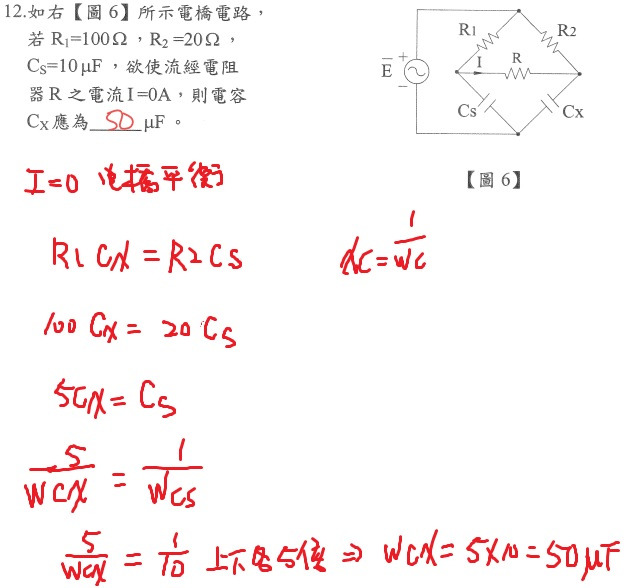 12.如右【圖 6】所示電橋電路，
若 R₁=100Ω，R₂ =20Ω，
Cs=10μF，欲使流經電阻
器 R 之電流 I=0A，則電容
Cx 應為 50 μF。
R1
R2
I
R
E
+
−
Cs
Cx
【圖 6】
I=0 电橋平衡
R1 CX = R2 CS
XC = 1/WC
100 CX = 20 CS
5CX = CS
5/WCX = 1/WCS
5/WCX = 1/10 上下皆5倍 ⇒ WCX = 5×10 = 50μF